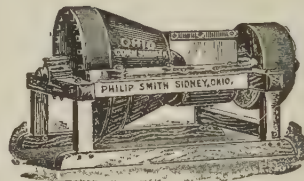 OHIO
PHILIP SMITH SIDNEY, OHIO.